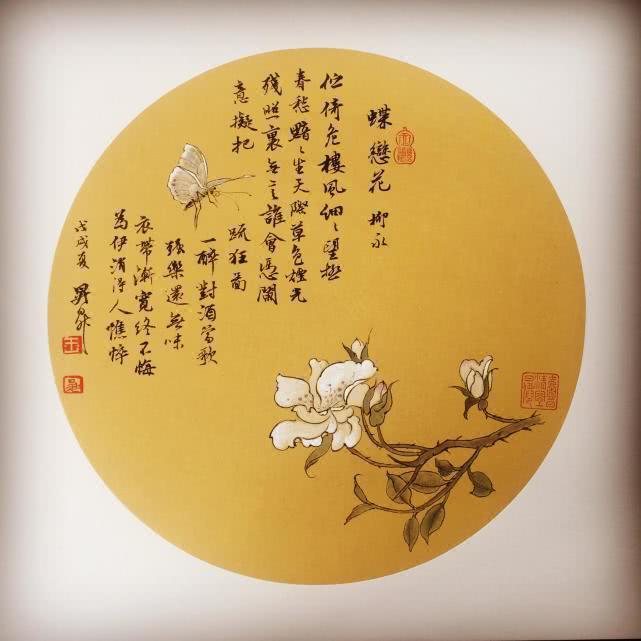 蝶戀花 柳永
佇倚危樓風細〻望極
春愁黯〻生天際草色煙光
殘照裏無言誰會憑闌
意擬把
疏狂圖
一醉對酒當歌
強樂還無味
衣帶漸寬終不悔
為伊消得人憔悴
戊戌夏